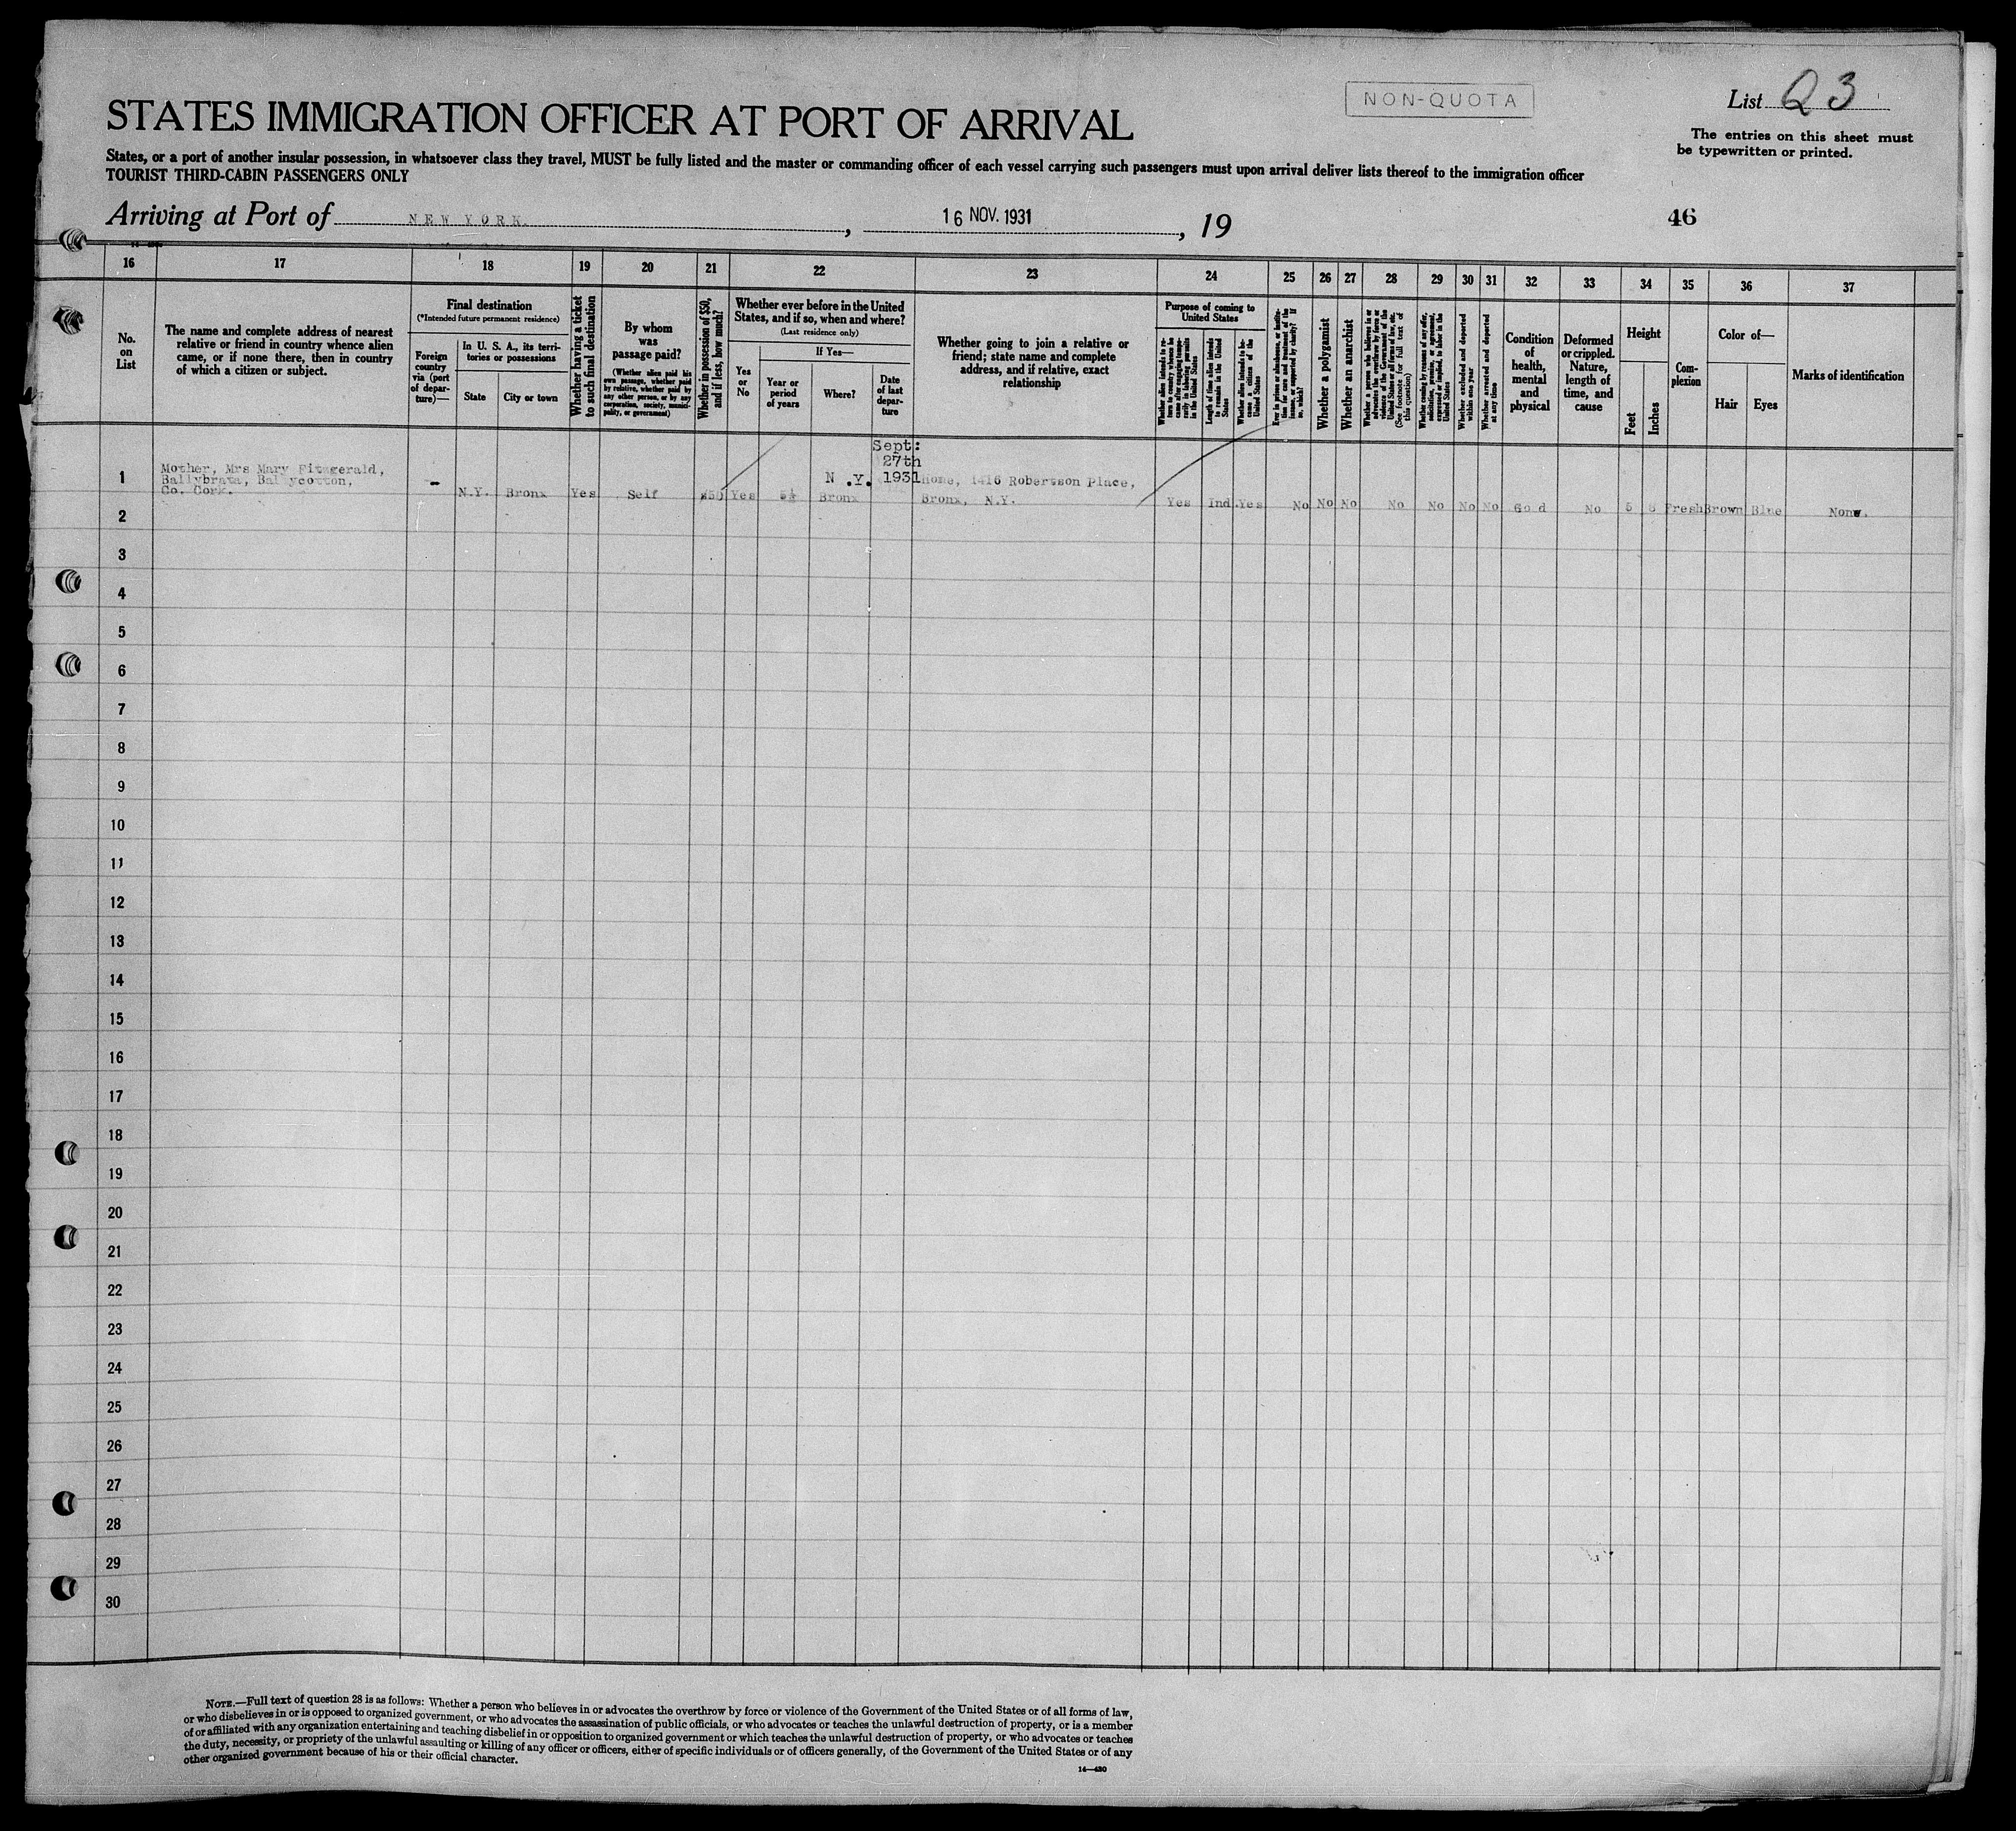 NON-QUOTA
List Q 3
STATES IMMIGRATION OFFICER AT PORT OF ARRIVAL
The entries on this sheet must
be typewritten or printed.
States, or a port of another insular possession, in whatsoever class they travel, MUST be fully listed and the master or commanding officer of each vessel carrying such passengers must upon arrival deliver lists thereof to the immigration officer
TOURIST THIRD-CABIN PASSENGERS ONLY
Arriving at Port of NEW YORK. , 16 NOV. 1931 , 19
46
16 17 18 19 20 21 22 23 24 25 26 27 28 29 30 31 32 33 34 35 36 37
No.
on
List
The name and complete address of nearest
relative or friend in country whence alien
came, or if none there, then in country
of which a citizen or subject.
Final destination
(*Intended future permanent residence)
Foreign
country
via (port
of depar-
ture)—
In U. S. A., its terri-
tories or possessions
State
City or town
Whether having a ticket
to such final destination
By whom
was
passage paid?
(Whether alien paid his
own passage, whether paid
by relative, whether paid by
any other person, or by any
corporation, society, munici-
pality, or government)
Whether in possession of $50,
and if less, how much?
Whether ever before in the United
States, and if so, when and where?
(Last residence only)
Yes
or
No
If Yes—
Year or
period
of years
Where?
Date
of last
depar-
ture
Whether going to join a relative or
friend; state name and complete
address, and if relative, exact
relationship
Purpose of coming to
United States
Whether alien intends to re-
turn to country whence he
came after engaging tempo-
rarily in laboring pursuits
in the United States
Length of time alien intends
to remain in the United
States
Whether alien intends to be-
come a citizen of the
United States
Ever in prison or almshouse, or institu-
tion for care and treatment of the
insane, or supported by charity? If
so, which?
Whether a polygamist
Whether an anarchist
Whether a person who believes in or
advocates the overthrow by force or
violence of the Government of the
United States or all forms of law, etc.
(See footnote for full text of
this question)
Whether coming by reasons of any offer,
solicitation, promise, or agreement,
expressed or implied, to labor in the
United States
Whether excluded and deported
within one year
Whether arrested and deported
at any time
Condition
of
health,
mental
and
physical
Deformed
or crippled.
Nature,
length of
time, and
cause
Height
Feet
Inches
Com-
plexion
Color of—
Hair
Eyes
Marks of identification
1
Mother, Mrs Mary Fitzgerald,
Ballybrata, Ballycotton,
Co. Cork.
- N.Y. Bronx Yes Self $50 Yes 5½
N.Y.
Bronx
Sept:
27th
1931
Home, 1416 Robertson Place,
Bronx, N.Y.
Yes Ind. Yes No No No No No No No Good No 5 8 Fresh Brown Blue None.
2
3
4
5
6
7
8
9
10
11
12
13
14
15
16
17
18
19
20
21
22
23
24
25
26
27
28
29
30
NOTE.—Full text of question 28 is as follows: Whether a person who believes in or advocates the overthrow by force or violence of the Government of the United States or of all forms of law,
or who disbelieves in or is opposed to organized government, or who advocates the assassination of public officials, or who advocates or teaches the unlawful destruction of property, or is a member
of or affiliated with any organization entertaining and teaching disbelief in or opposition to organized government or which teaches the unlawful destruction of property, or who advocates or teaches
the duty, necessity, or propriety of the unlawful assaulting or killing of any officer or officers, either of specific individuals or of officers generally, of the Government of the United States or of any
other organized government because of his or their official character.
14—430